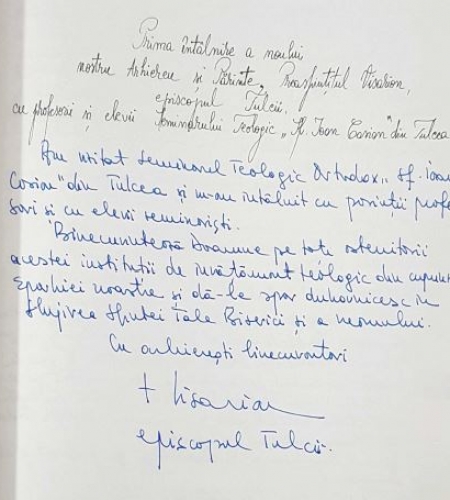 Prima întâlnire a noului
nostru Arhiereu și Părinte, Preasfințitul Visarion,
episcopul Tulcii,
cu profesorii și elevii Seminarului Teologic „Sf. Ioan Casian" din Tulcea
Am vizitat Seminarul Teologic Ortodox „Sf. Ioan
Casian" din Tulcea și m-am întâlnit cu părinții profe
sori și cu elevii seminariști.
Binecuvintează Doamne pe toți ostenitorii
acestei instituții de învățământ teologic din cuprinsul
Eparhiei noastre și dă-le spor duhovnicesc în
slujirea Sfintei Tale Biserici și a neamului.
Cu arhierești binecuvântări
† Visarion
episcopul Tulcii.